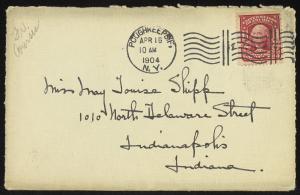 POUGHKEEPSIE,
APR 15
10 AM
1904
N.Y.
Miss May Louise Shipp
1010 North Delaware Street
Indianapolis
Indiana.